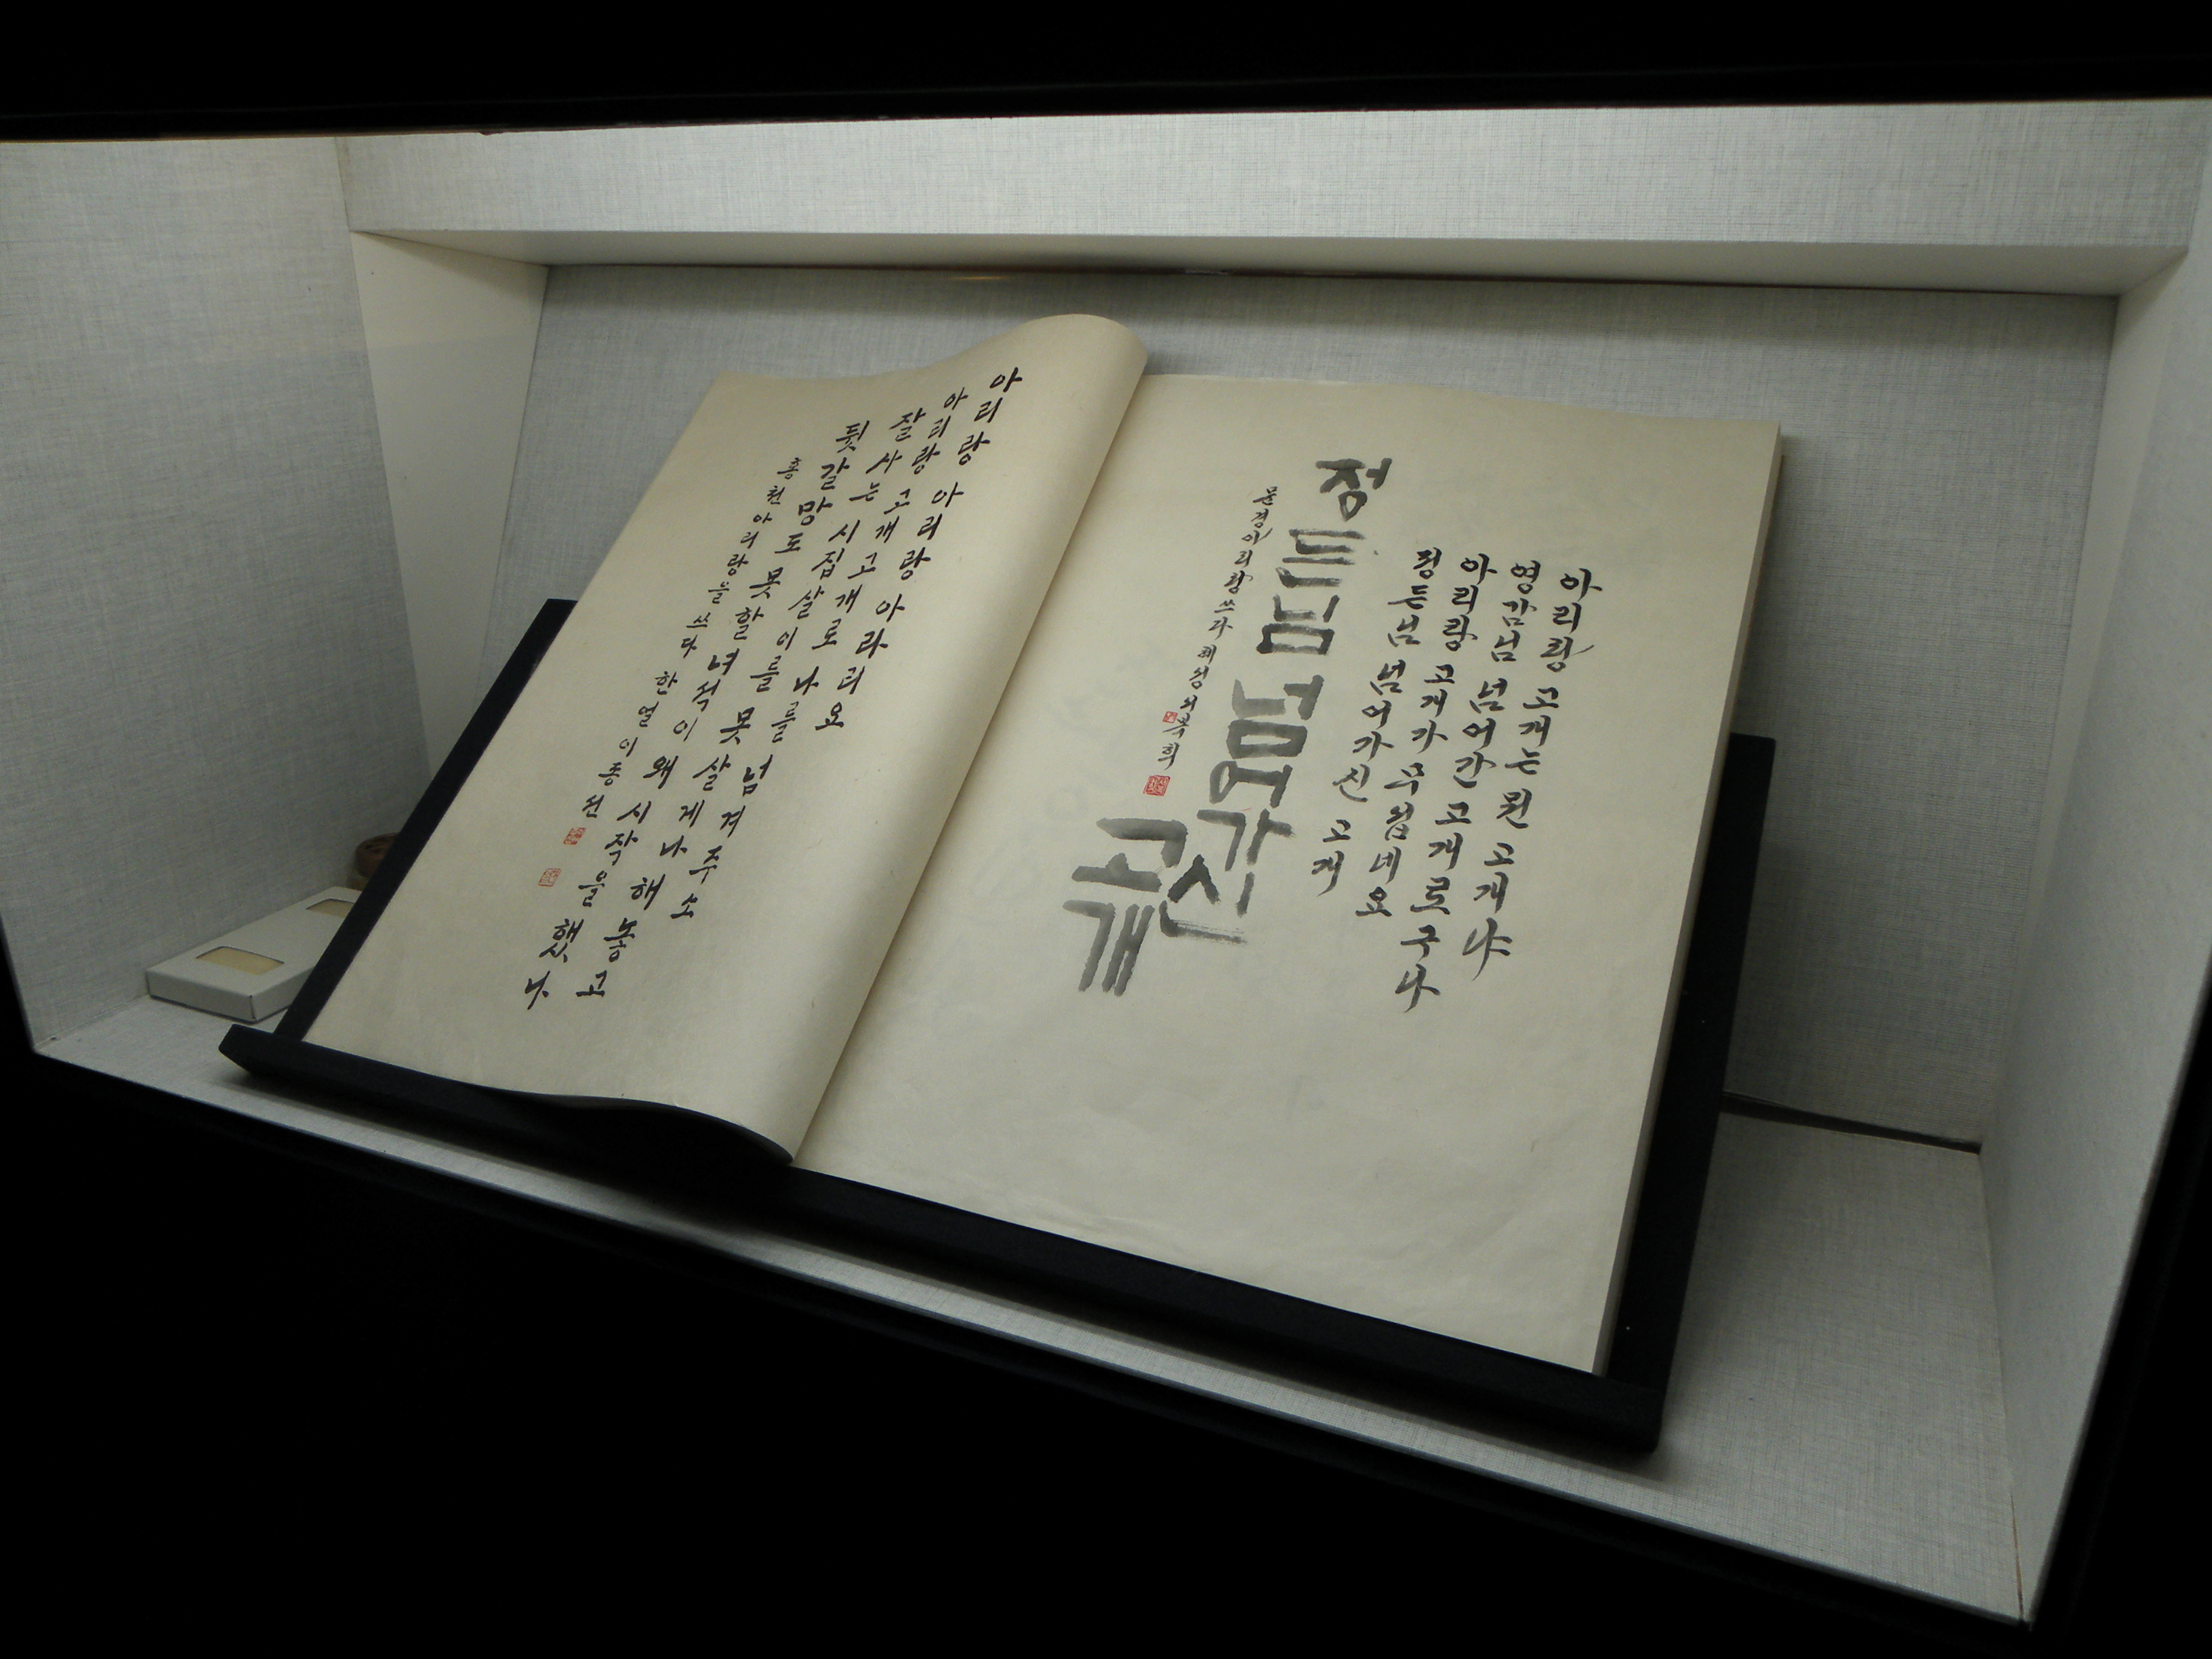 아리랑 고개는 뭔 고개냐
영감님 넘어간 고개로구나
아리랑 고개가 무섭네요
정든님 넘어가신 고개
정든님 넘어가신 고개
문경아리랑 쓰다
아리랑 아리랑 아라리요
아리랑 고개고개로 나를 넘겨주소
잘사는 시집살이를 못살게나 해놓고
뒷갈망도 못할 녀석이 왜 시작을 했나
홍천아리랑을 쓰다 한얼이종선